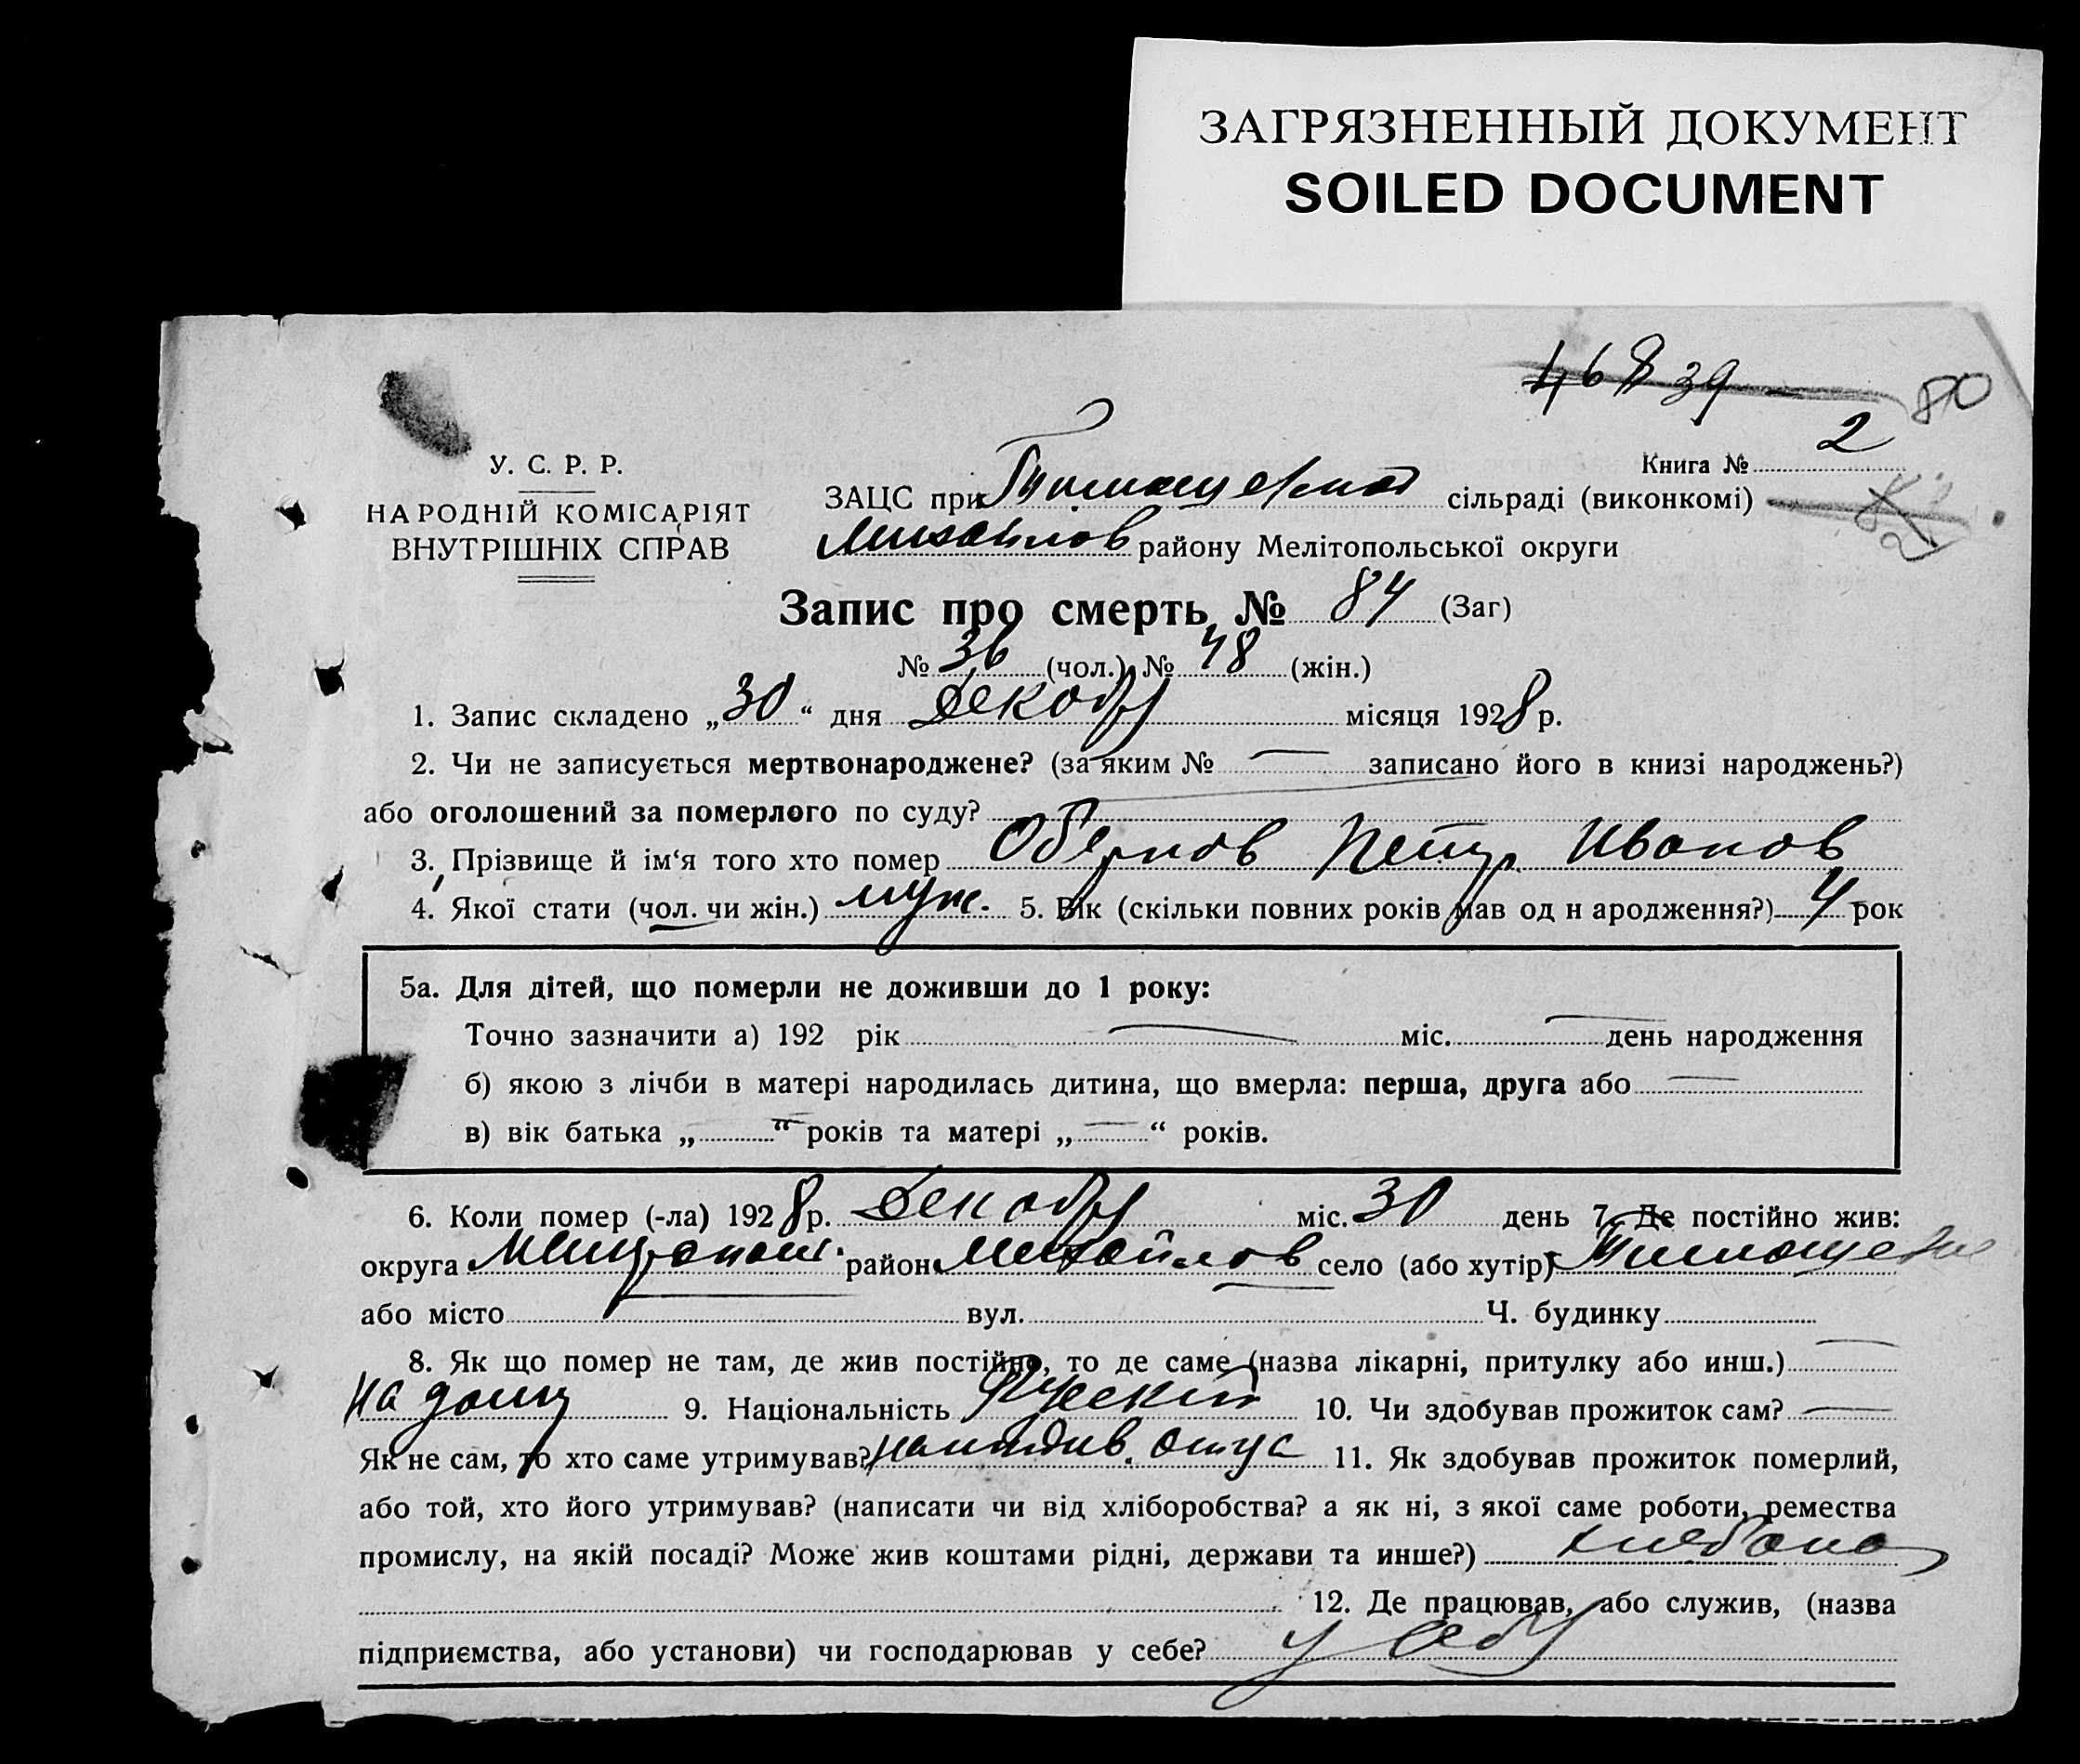 ЗАГРЯЗНЕННЫЙ ДОКУМЕНТ
SOILED DOCUMENT
46 39
80
Книга № 2
У. С. Р. Р.
НАРОДНІЙ КОМІСАРІЯТ
ВНУТРІШНІХ СПРАВ
ЗАЦС при сільраді (виконкомі)
Михайлов району Мелітопольської округи
Запис про смерть № 84 (Заг)
№ 36 (чол.) № 48 (жін.)
1. Запис складено „30“ дня Декабр місяця 1928 р.
2. Чи не записується мертвонароджене? (за яким № — записано його в книзі народжень?)
або оголошений за померлого по суду?
3. Прізвище й ім‘я того хто помер Петр Иванов
4. Якої стати (чол. чи жін.) муж. 5. Вік (скільки повних років мав од н ародження?) 4 рок
5а. Для дітей, що померли не доживши до 1 року:
Точно зазначити а) 192 рік — міс. — день народження
б) якою з лічби в матері народилась дитина, що вмерла: перша, друга або —
в) вік батька „—“ років та матері „—“ років.
6. Коли помер (-ла) 1928 р. Декабр міс. 30 день 7. Де постійно жив:
округа район Михайлов село (або хутір)
або місто вул. Ч. будинку
8. Як що помер не там, де жив постійно, то де саме (назва лікарні, притулку або инш.) —
на дому 9. Національність Руский 10. Чи здобував прожиток сам? —
Як не сам, то хто саме утримував? отца 11. Як здобував прожиток померлий,
або той, хто його утримував? (написати чи від хліборобства? а як ні, з якої саме роботи, ремества
промислу, на якій посаді? Може жив коштами рідні, держави та инше?)
12. Де працював, або служив, (назва
підприємства, або установи) чи господарював у себе? у себя